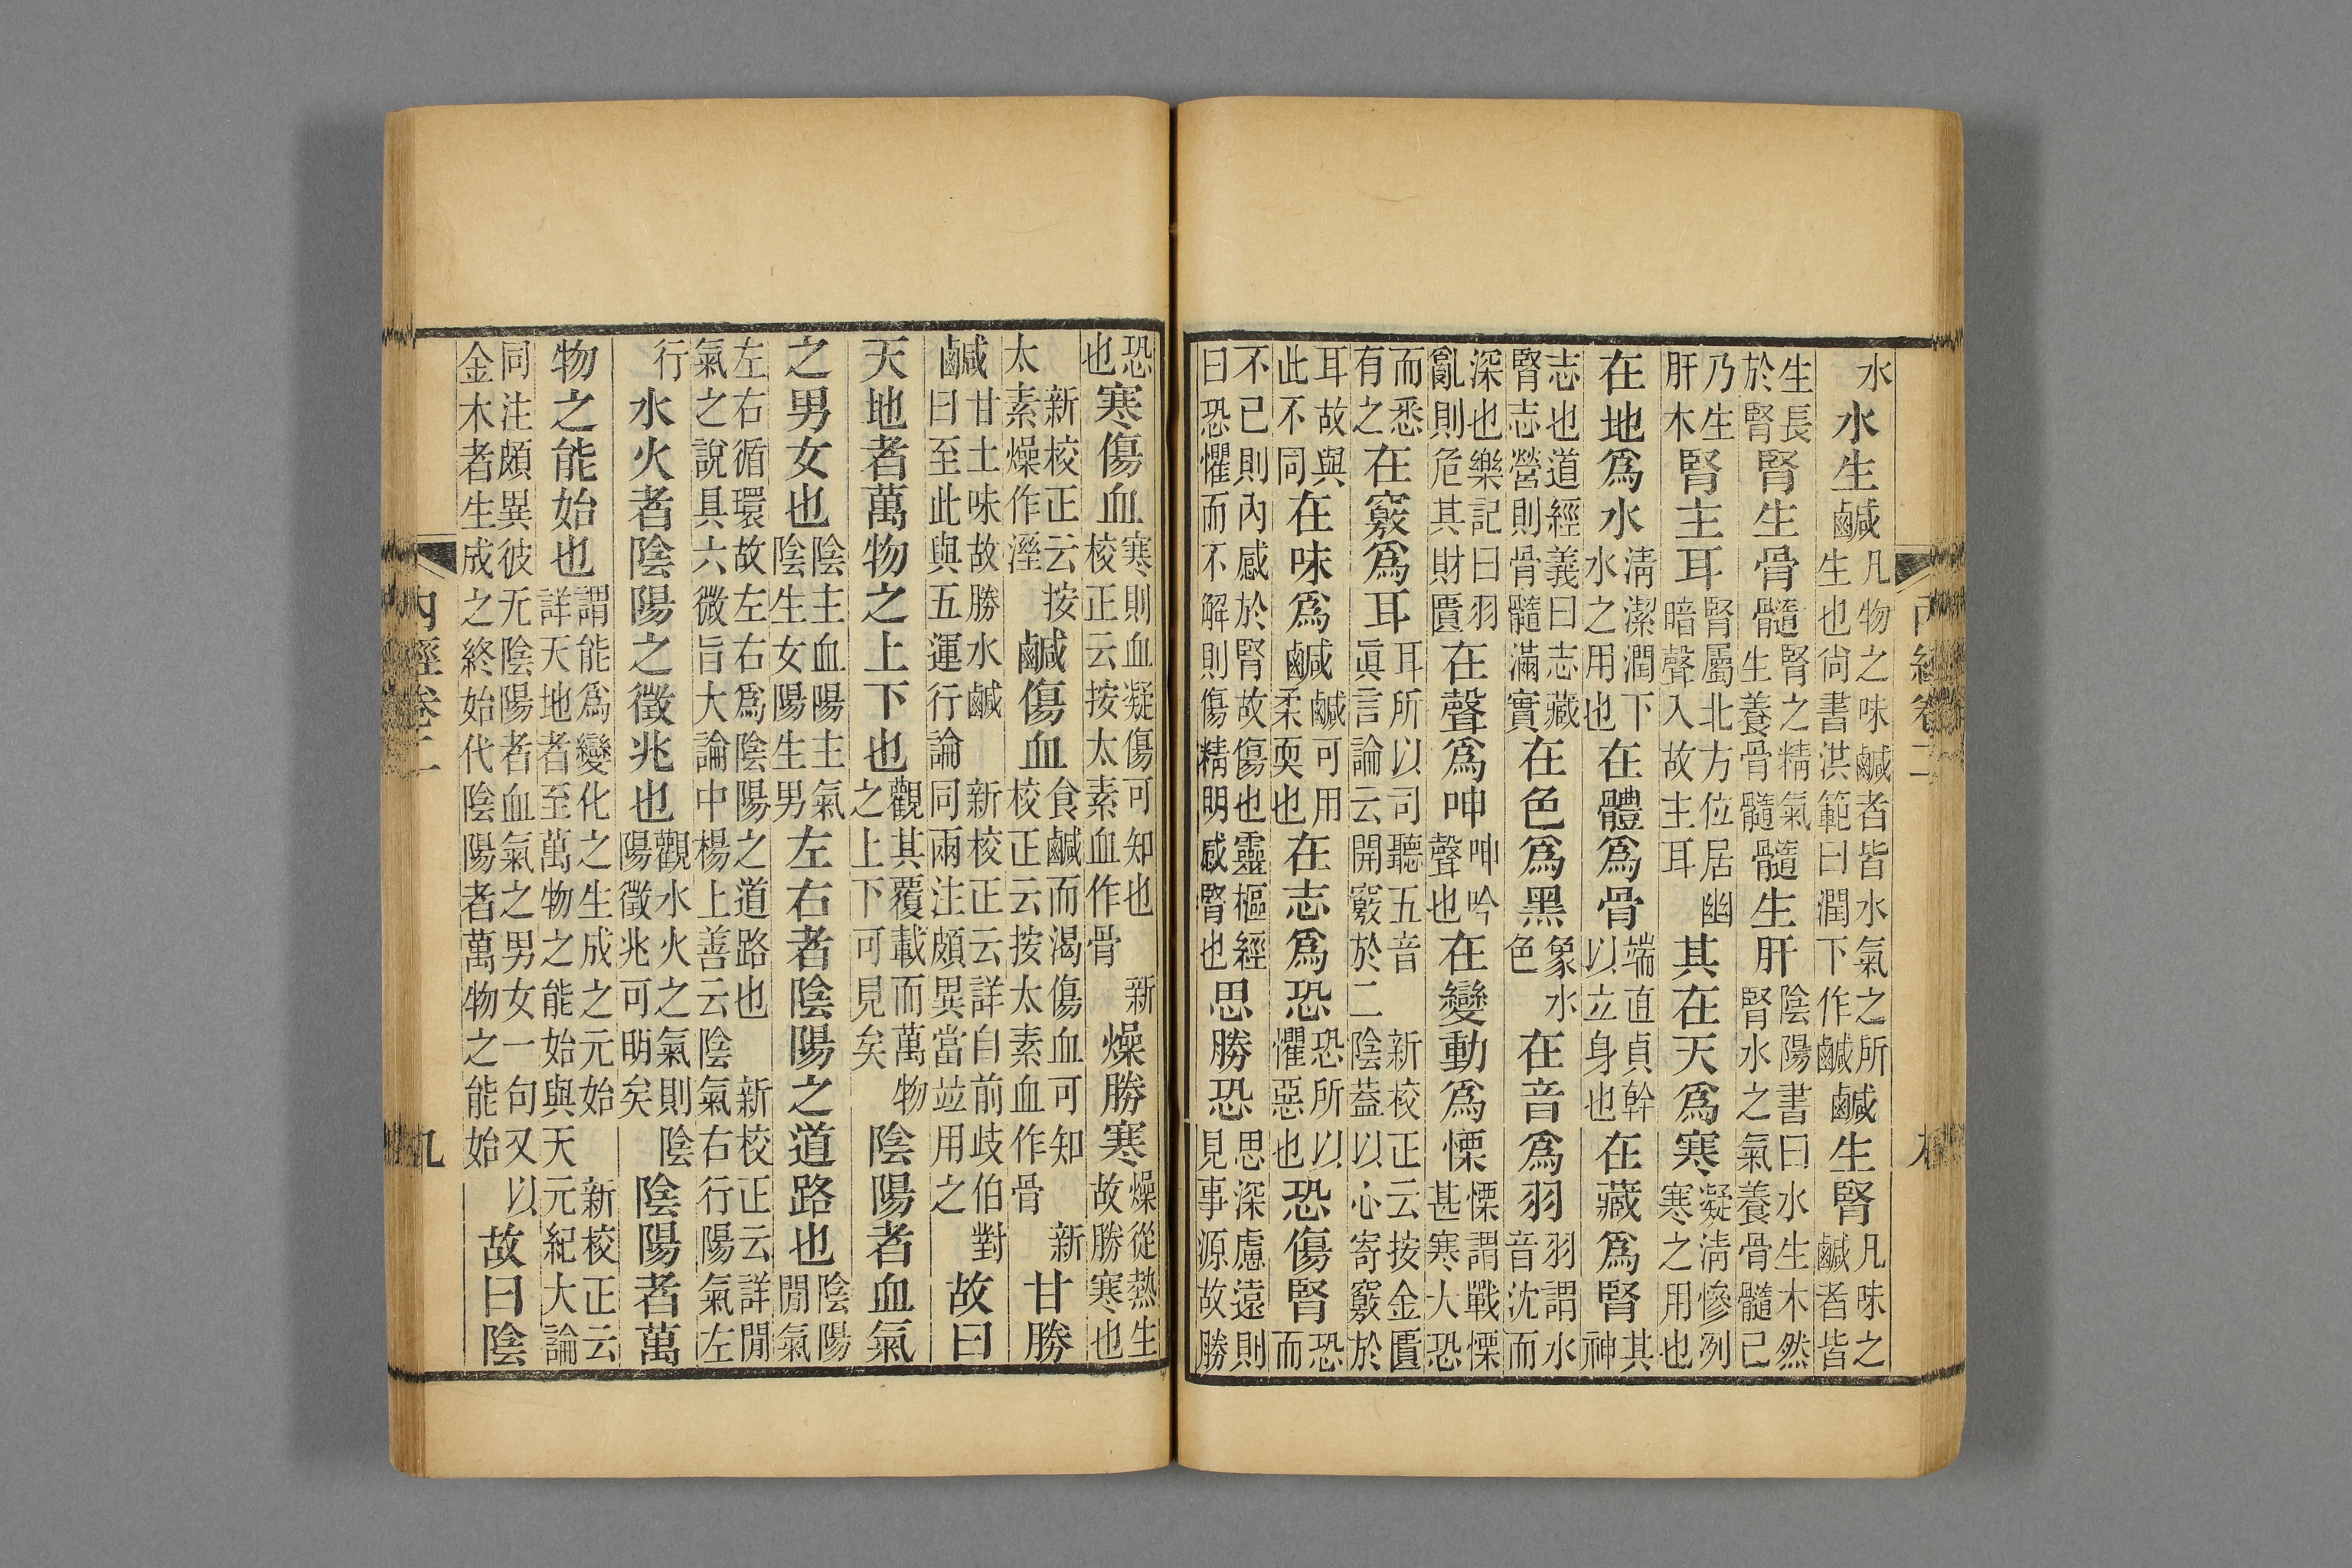 内經卷二
水水生鹹凡物之味鹹者皆水氣之所生也尙書洪範曰潤下作鹹鹹生腎凡味之鹹者皆
生長於腎腎生骨髓腎之精氣生養骨髓髓生肝陰陽書曰水生木然腎水之氣養骨髓已
乃生肝木腎主耳腎屬北方位居幽暗聲入故主耳其在天爲寒凝淸慘列寒之用也
在地爲水淸潔潤下水之用也在體爲骨端直貞幹以立身也在藏爲腎其神
志也道經義曰志藏腎志營則骨髓滿實在色爲黑象水色在音爲羽羽謂水音沈而
深也樂記曰羽亂則危其財匱在聲爲呻呻吟聲也在變動爲慄慄謂戰慄甚寒大恐
而悉有之在竅爲耳耳所以司聽五音 新校正云按金匱眞言論云開竅於二陰蓋以心寄竅於
耳故與此不同在味爲鹹鹹可用柔耎也在志爲恐恐所以懼惡也恐傷腎恐而
不已則內感於腎故傷也靈樞經曰恐懼而不解則傷精明感腎也思勝恐思深慮遠則見事源故勝
恐也寒傷血寒則血凝傷可知也 新校正云按太素血作骨燥勝寒燥從熱生故勝寒也
新校正云按太素燥作溼鹹傷血食鹹而渴傷血可知 新校正云按太素血作骨甘勝
鹹甘土味故勝水鹹 新校正云詳自前歧伯對曰至此與五運行論同兩注頗異當竝用之故曰
天地者萬物之上下也觀其覆載而萬物之上下可見矣陰陽者血氣
之男女也陰主血陽主氣陰生女陽生男左右者陰陽之道路也陰陽閒氣
左右循環故左右爲陰陽之道路也 新校正云詳閒氣之說具六微旨大論中楊上善云陰氣右行陽氣左
行水火者陰陽之徵兆也觀水火之氣則陰陽徵兆可明矣陰陽者萬
物之能始也謂能爲變化之生成之元始 新校正云詳天地者至萬物之能始與天元紀大論
同注頗異彼无陰陽者血氣之男女一句又以金木者生成之終始代陰陽者萬物之能始故曰陰
内經卷二 九